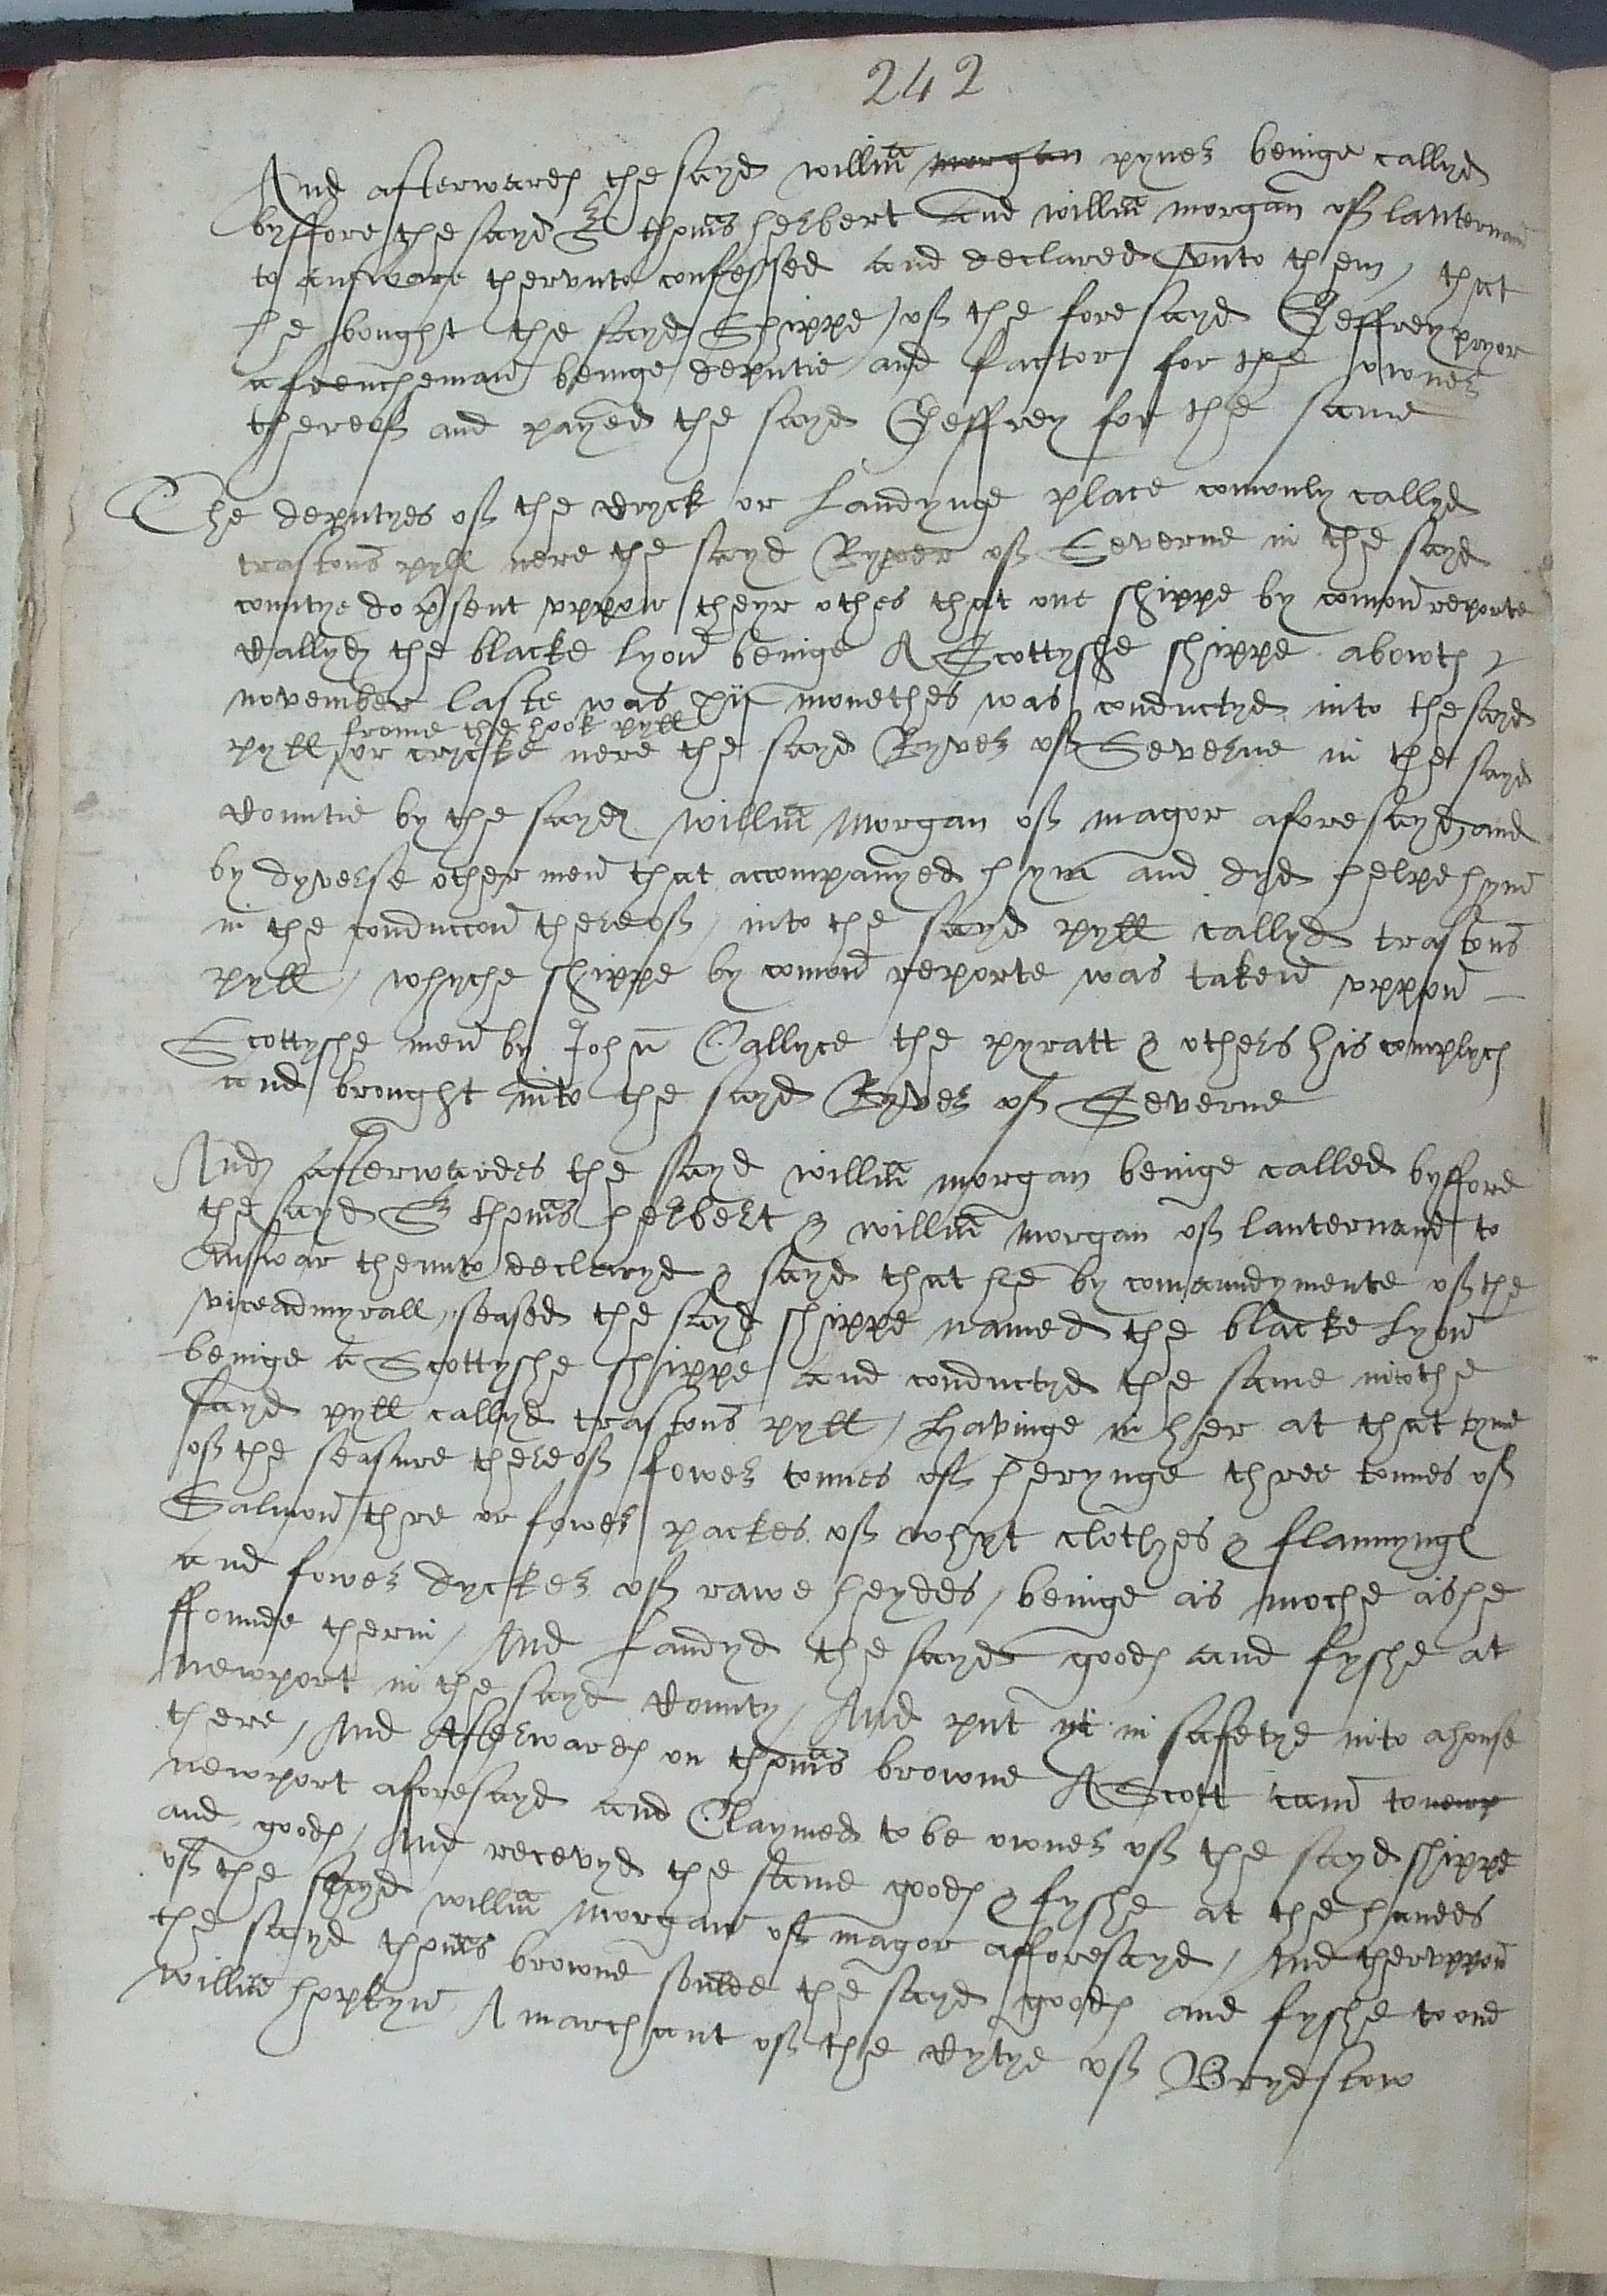 242
And afterwardes the sayd willm̄ morgan pyner beinge callyd
byffore the sayd Sr thom̄s herbert and willm̄ morgan off lanternam
to answare thervnto confessed and declared vnto them / that
he bought the sayd Shippe / off the fore sayd Jeffrey pryor
a frencheman beinge deputie and factor for the owner
thereoff and payed the sayd Jeffrey for the same
The deputyes off the cryck or Landynge place comonly callyd
trastons pyll nere the sayd Ryver off Severne in the sayd
countye do p̄sent vppon theyr othes that one shippe by comon reporte
callyd the blacke lyon beinge A Scottyshe shippe abowth
november laste was xij monethes was conductyd into the sayd
frome the hook pyll
pyll or crycke nere the sayd Ryver off Severne in the sayd
countie by the sayd willm̄ Morgan off magor aforesayd and
by dyverse other men that accompanyed hym and dyd helpe hym
in the conduccon thereoff / into the sayd pyll callyd trastons
pyll / whyche shippe by comon reporte was taken vppon
Scottyshe men by John Callyce the pyratt & others his complyces
and brought into the sayd Ryver off Severne
And afterwardes the sayd willm̄ morgan beinge called byffore
the sayd Sr thom̄s herbert & willm̄ morgan off lanternam to
Answar therunto declaryd & sayd that he by comaundymente off the
viceadmyrall / seased the sayd shippe named the blacke Lyon
beinge a Scottyshe shippe and conductyd the same into the
sayd pyll callyd trastons pyll / Havinge in her at that tyme
off the seasure thereoff fower tonnes off herynge three tonnes off
Salmon thre or fower packes off whyt clothyes & flannyngs
and fower dycker off rawe heydes / beinge as moche as he
ffounde therin / And Landyd the sayd goodes and fyshe at
Newport in the sayd county / And put yt in safetye into a house
there / And Afterwardes on thom̄s browne A Scott cam to newp
newport aforesayd and Claymed to be owner off the sayd shippe
and goodes / And recevyd the same goodes & fyshe at the handes
off the sayd willm̄ Morgan off magor afforesayd / And thervppon
the sayd thom̄s browne soulde the sayd goodes and fyshe to one
willm̄ hopkyn A marchant off the cytye off Brydstow